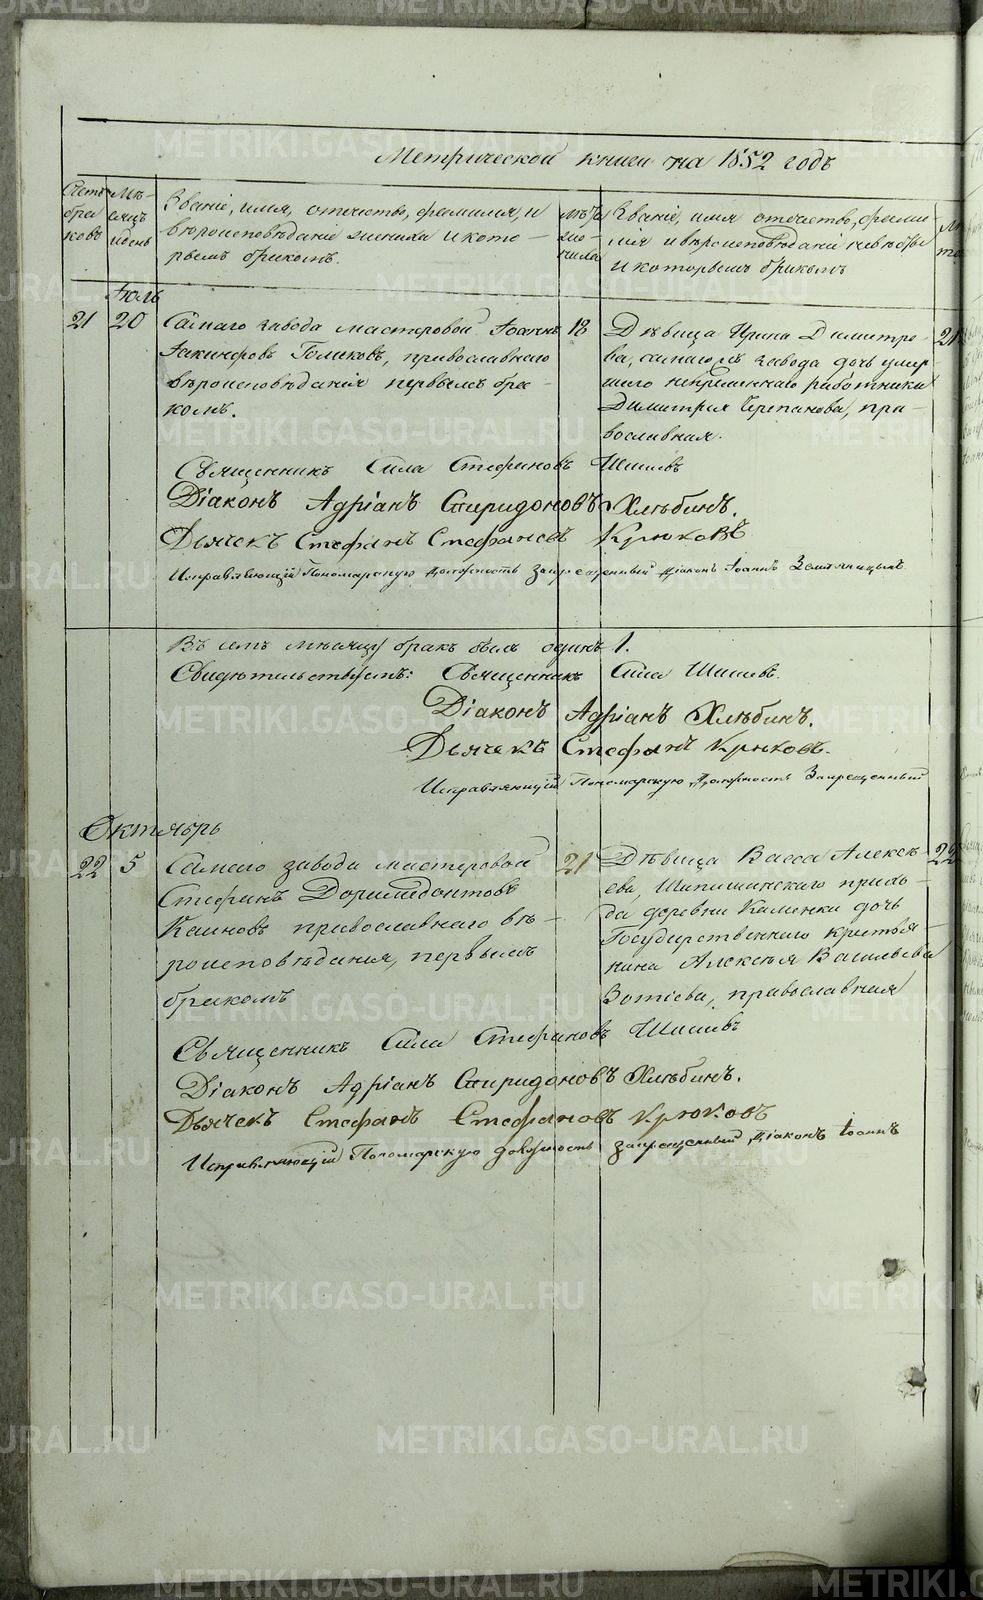 Метрической книги на 1852 годъ
Счетъ браковъ
Мѣсяцъ и день
Званіе, имя, отечество, фамилія, и
вѣроисповѣданіе жениха и кото-
рымъ бракомъ.
Званіе, имя отечество, фами-
лія и вѣроисповѣданіе невѣсты
и которымъ бракомъ
Іюль
21 20 Самаго завода мастеровой Іоаннъ 18
Іакинфовъ Голиковъ, православнаго
вѣроисповѣданія первымъ бра-
комъ.
Дѣвица Ирина Димитріе-
ва, самаго завода дочь умер
шаго непремѣннаго работника
Димитрія Черепанова, пра-
вославная.
21
Священникъ Сила Стефановъ Шишевъ
Діаконъ Адріанъ Спиридоновъ Хлѣбинъ.
Дьячекъ Стефанъ Стефановъ Крюковъ
Исправляющій Пономарскую должность запрещенный діаконъ Іоаннъ
Въ семъ мѣсяцѣ бракъ былъ одинъ 1.
Свидѣтельствуемъ: Священникъ Сила Шишевъ.
Діаконъ Адріанъ Хлѣбинъ.
Дьячекъ Стефанъ Крюковъ.
Исправляющій Пономарскую Должность Запрещенный
Октябрь
22 5 Самаго завода мастеровой 21
Стефанъ Доримедонтовъ
православнаго вѣ-
роисповѣданія, первымъ
бракомъ
Дѣвица Васса Алексѣ-
ева, прихо-
да деревни Каменки дочь
Государственнаго крестья
нина Алексѣя Васильева
Зотіева, православная
22
Священникъ Сила Стефановъ Шишевъ
Діаконъ Адріанъ Спиридоновъ Хлѣбинъ.
Дьячекъ Стефанъ Стефановъ Крюковъ
Исправляющій Пономарскую должность запрещенный Діаконъ Іоаннъ
METRIKI.GASO-URAL.RU